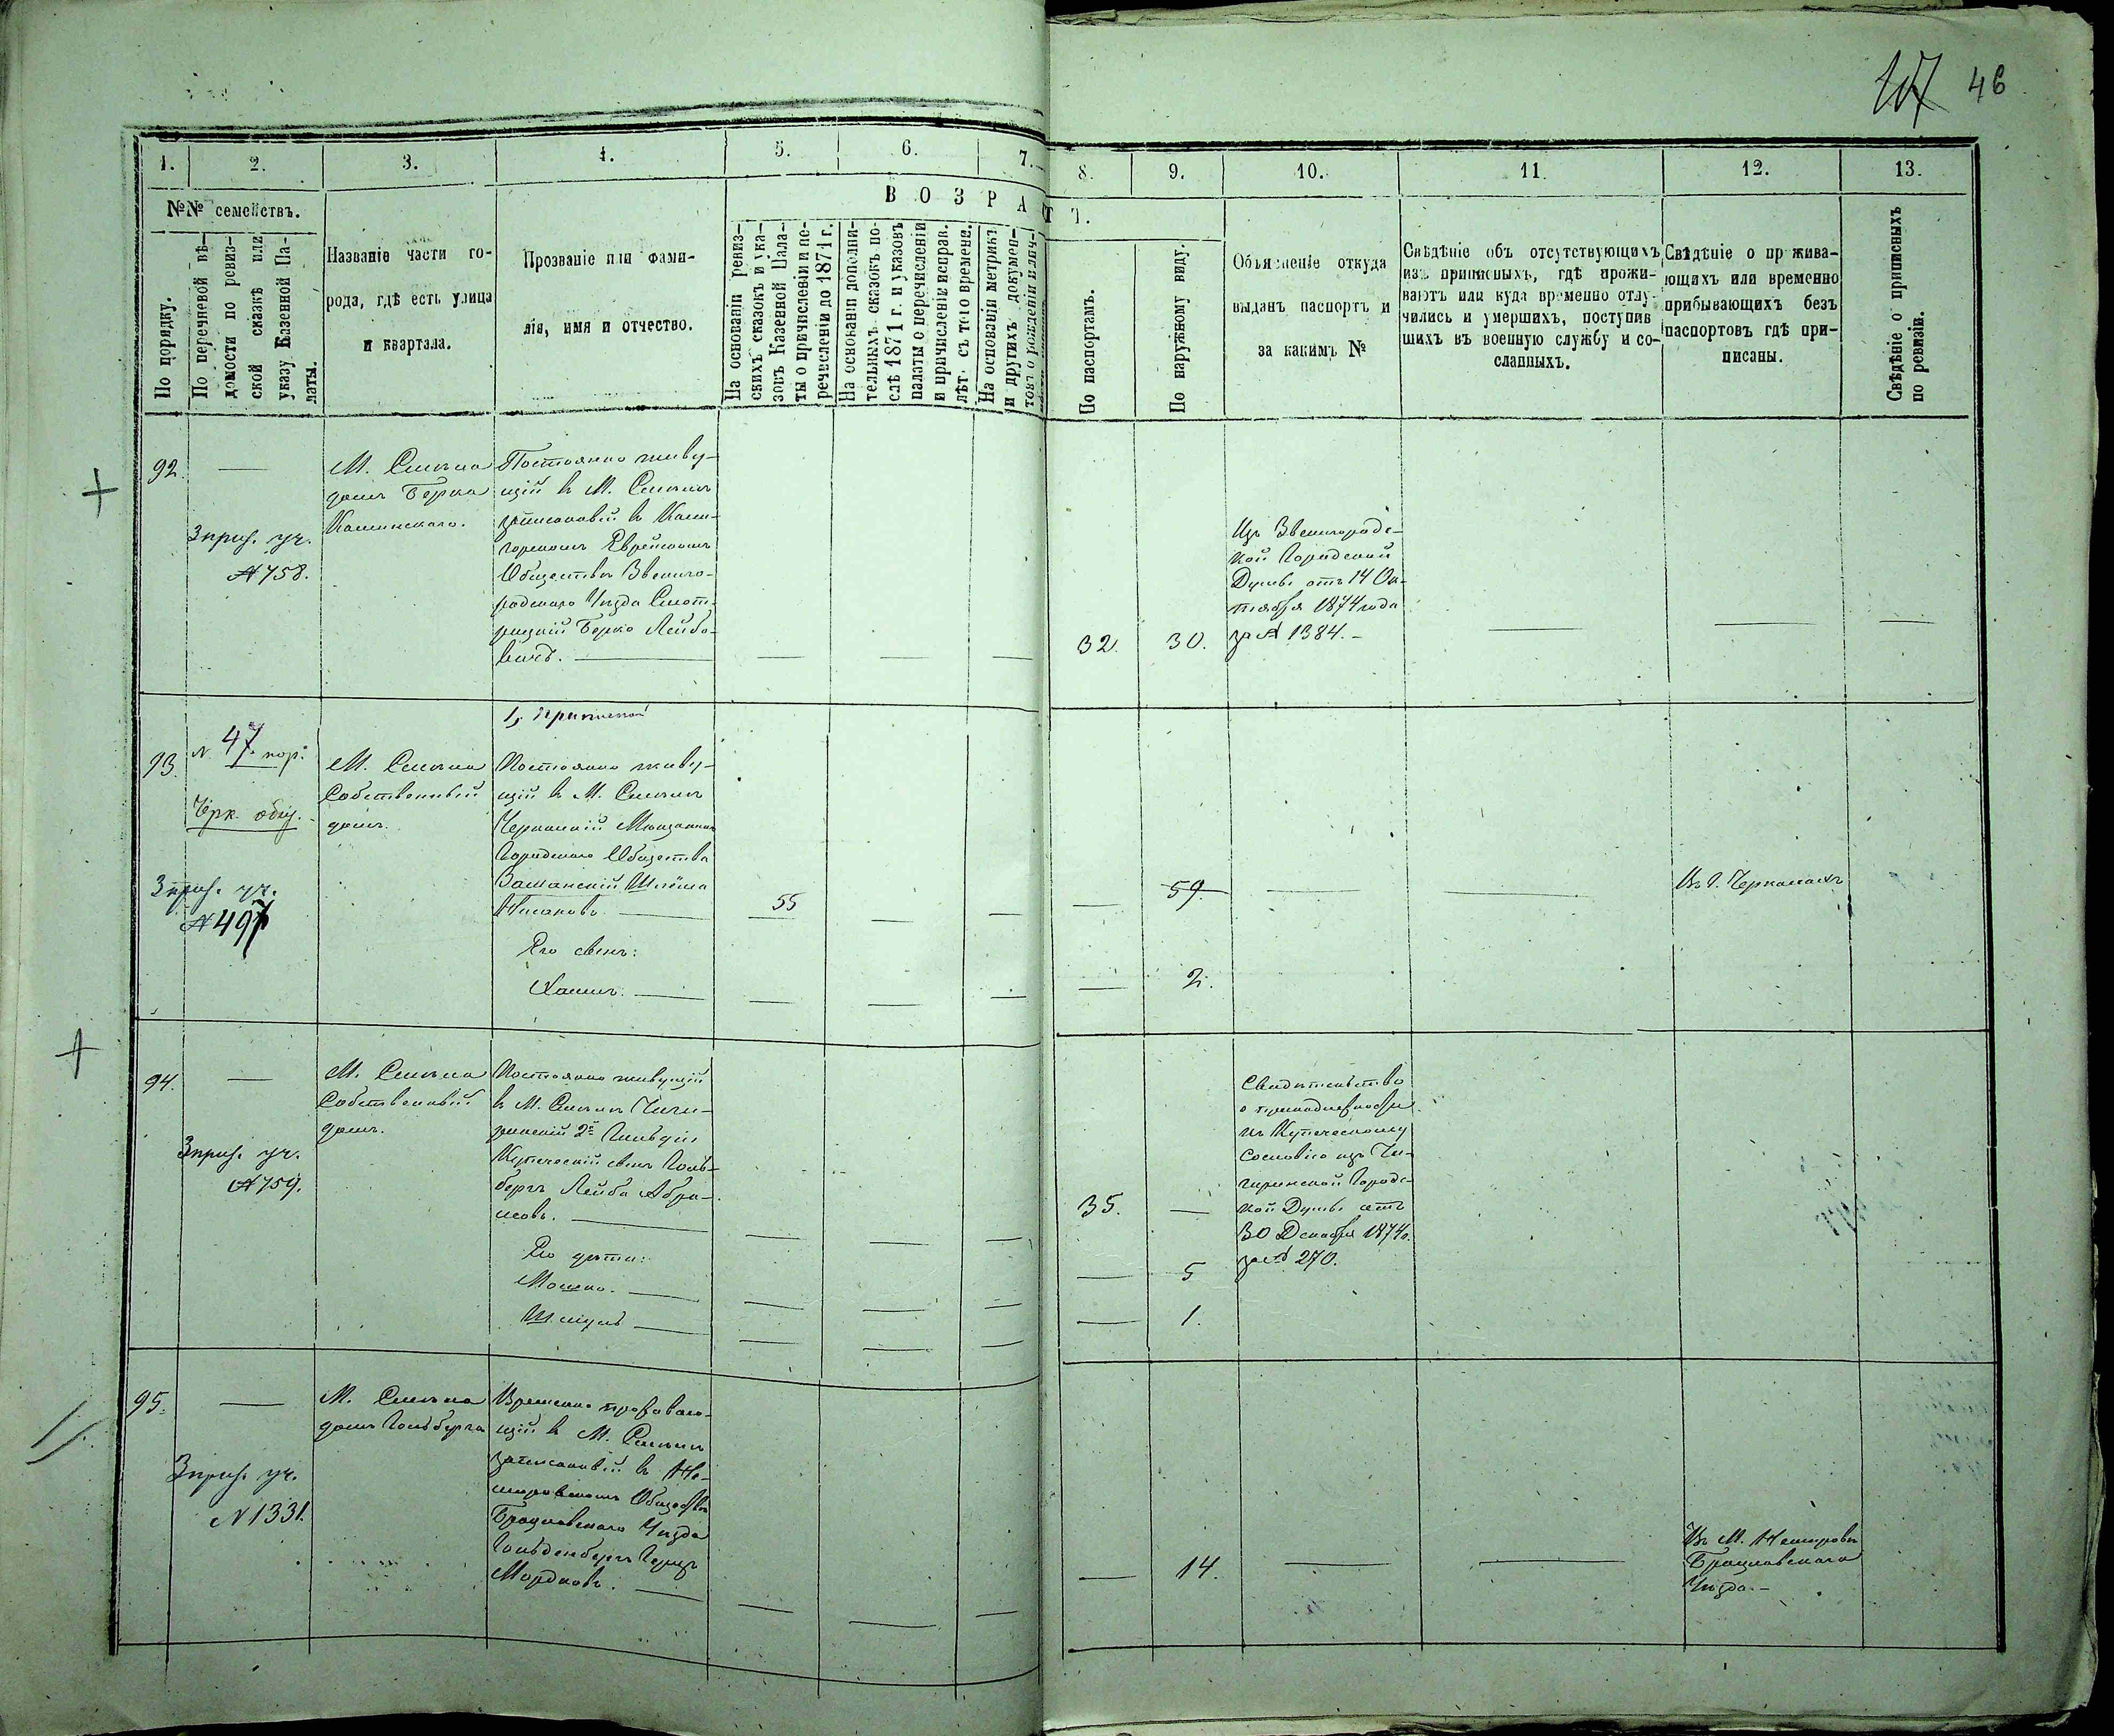 46
1. 2. 3. 4. 5. 6. 7. 8. 9. 10. 11. 12. 13.
№№ семействъ.
ВОЗРАСТЪ.
По порядку.
По перечневой вѣ-
домости по ревиз-
ской сказкѣ или
указу Казенной Па-
латы.
Названіе части го-
рода, гдѣ есть улица
и квартала.
Прозваніе или фами-
лія, имя и отчество.
На основаніи ревиз-
скихъ сказокъ и ука-
зовъ Казенной Пала-
ты о причисленіи и пе-
речисленіи до 1871 г.
На основаніи дополни-
тельныхъ сказокъ по-
слѣ 1871 г. и указовъ
палаты о перечисленіи
и причисленіи исправ.
лѣт. съ того времени.
На основаніи метрикъ
и другихъ докумен-
товъ о рожденіи
По паспортамъ.
По наружному виду.
Объясненіе откуда
выданъ паспортъ и
за какимъ №
Свѣдѣніе объ отсутствующихъ
изъ приписныхъ, гдѣ прожи-
ваютъ или куда временно отлу-
чились и умершихъ, поступив
шихъ въ военную службу и со-
сланныхъ.
Свѣдѣніе о прожива-
ющихъ или временно
прибывающихъ безъ
паспортовъ гдѣ при-
писаны.
Свѣдѣніе о приписныхъ
по ревизіи.
92.
3 приз. уч.
№ 758.
М. Смѣла
домъ Берка
Каминскаго.
Постоянно живу-
щій въ М. Смѣлѣ
записанный въ
Еврейскомъ
Обществѣ Звениго-
родскаго Уѣзда Смот-
рицкій Берко Лейбо-
вичъ.
32. 30.
Изъ Звенигородс-
кой Городской
Думы отъ 14 Ок-
тября 1874 года
за № 1384.
93.
N 47 кор.
Черк. общ.
3 приз. уч.
№ 497
М. Смѣла
Собственный
домъ.
Постоянно живу-
щій въ М. Смѣлѣ
Черкасскій Мѣщанинъ
Городскаго Общества
Шлёма
55
59.
Въ г. Черкасахъ
Его сынъ:
2.
94.
3 приз. уч.
№ 759.
М. Смѣла
Собственный
домъ.
Постоянно живущій
въ М. Смѣлѣ Чиги-
ринскій 2й Гильдіи
Купеческій сынъ Голь-
бергъ Лейба Абра-
мовъ.
35.
Свидѣтельство
о принадлежности
къ Купеческому
Сословію изъ Чи-
гиринской Городс-
кой Думы отъ
30 Декабря 1874 г.
за № 270.
Его дѣти:
Мошко.
5
Шмуль
1.
95.
3 приз. уч.
N 1331.
М. Смѣла
домъ Гольберга
Временно прожываю-
щій въ М. Смѣлѣ
записанный въ Не-
мировскомъ Обществѣ
Брацлавскаго Уѣзда
Гольденбергъ Герцъ
Мордковъ.
14.
Въ М. Немировѣ
Брацлавскаго
Уѣзда.